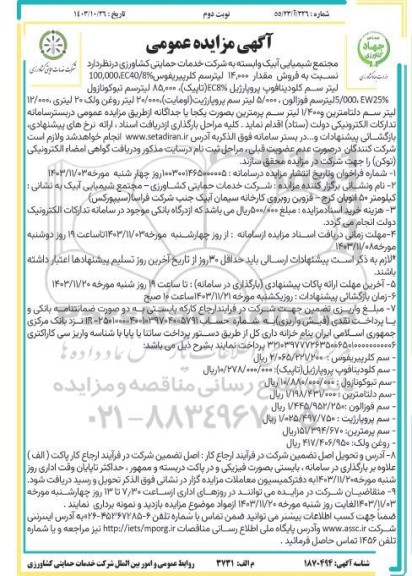 شماره : ۵۵/۲۳/آ/۳۲۶
نوبت دوم
تاریخ : ۱۴۰۳/۱۰/۲۹
جهاد کشاورزی
آگهی مزایده عمومی
شرکت خدمات حمایتی کشاورزی
مجتمع شیمیایی آبیک وابسته به شرکت خدمات حمایتی کشاورزی درنظردارد
نسبت به فروش مقدار ۱۴,۰۰۰ لیترسم کلرپیریفوس EC40/8%,100,000
لیتر سم کلودینافوپ پروپارژیل EC8%(تاپیک)، ۸۵,۰۰۰ لیترسم تبوکونازول
EW25% ,5/000لیترسم فوزالون ، ۵/۰۰۰ لیتر سم پروپارژیت(اومایت)،۲۰/۰۰۰ لیتر روغن ولک ۲۰ لیتری ،۱۲/۰۰۰
لیتر سم دلتامترین و۱/۴۰۰ لیتر سم پرمترین بصورت یکجا یا جداگانه ازطریق مزایده عمومی دربسترسامانه
تدارکات الکترونیکی دولت (ستاد) اقدام نماید . کلیه مراحل بارگذاری ازدریافت اسناد ، ارائه نرخ های پیشنهادی،
بازگشائی پیشنهادات و...در بستر سامانه فوق الذکربه آدرس www.setadiran.ir انجام خواهدشد ولازم است
شرکت کنندگان درصورت عدم عضویت قبلی، مراحل ثبت نام درسایت مذکور ودریافت گواهی امضاء الکترونیکی
(توکن) را جهت شرکت در مزایده محقق سازند.
۱- شماره فراخوان وتاریخ انتشار مزایده درسامانه : ۱۰۰۳۰۰۱۴۶۵۰۰۰۰۰۵روز چهار شنبه مورخه۱۴۰۳/۱۱/۰۳
۲- نام ونشانی برگزار کننده مزایده : شرکت خدمات حمایتی کشاورزی – مجتمع شیمیایی آبیک به نشانی :
کیلومتر ۵۰ اتوبان کرج – قزوین روبروی کارخانه سیمان آبیک جنب شرکت فراسا(سیپورکس)
۳- هزینه خرید اسنادمزایده : مبلغ ۵۰۰/۰۰۰ریال می باشد که ازدرگاه بانکی موجود در سامانه تدارکات الکترونیک
دولت انجام می گردد.
۴-مهلت زمانی دریافت اسناد مزایده ازسامانه : از روز چهارشنبه مورخه۱۴۰۳/۱۱/۰۳تاساعت ۱۹ روز دوشنبه
مورخه۱۴۰۳/۱۱/۰۸
*لازم به ذکر است پیشنهادات ارسالی باید حداقل ۳۰روز از تاریخ آخرین روز تسلیم پیشنهادها اعتبار داشته
باشند.
۵- آخرین مهلت ارائه پاکات پیشنهادی (بارگذاری در سامانه) : تا ساعت ۱۹ روز شنبه مورخه ۱۴۰۳/۱۱/۲۰
۶-زمان بازگشائی پیشنهادات : روزیکشنبه مورخه ۱۴۰۳/۱۱/۲۱ساعت ۱۰ صبح
۷- مبلغ واریزی تضمین جهت شرکت در فرایندارجاع کارکه بایستی به دو صورت ضمانتنامه بانکی و
یا پرداخت نقدی (فیش واریزی)به شماره حساب نزد بانک مرکزی
جمهوری اسلامی ایران بنام خزانه داری کل از طریق دستور پرداخت ساتنا یا پایا با شناسه واریز سی کاراکتری
پرداخت نمایند بشرح ذیل می باشد:
- سم کلرپیریفوس : ۲/۰۶۵/۲۲۱/۲۰۰ ریال
- سم کلودینافوپ پروپارژیل(تاپیک): ۱۰/۲۷۸/۰۰۰/۰۰۰ ریال
- سم تبوکونازول : ۱۰/۸۸۰/۰۰۰/۰۰۰ ریال
- سم دلتامترین : ۱/۱۹۸/۴۳۱/۰۰۰ ریال
- سم فوزالون : ۱/۴۴۵/۹۵۲/۲۵۰ ریال
- سم پروپارژیت : ۱/۰۲۵/۴۹۷/۷۵۰ ریال
- سم پرمترین : ۱۵۱/۳۹۴/۶۷۰ ریال
- روغن ولک : ۴۱۷/۴۰۶/۹۵۰ ریال
۸- آدرس و تحویل اصل تضمین شرکت در فرآیند ارجاع کار : اصل تضمین شرکت در فرآیند ارجاع کار پاکت ( الف )
علاوه بر بارگذاری در سامانه ، بایستی بصورت فیزیکی و در پاکت دربسته و ممهور ، حداکثر تاپایان وقت اداری روز
شنبه مورخه۱۴۰۳/۱۱/۲۰به دفترکمیسیون معاملات مزایده گزار در نشانی فوق الذکر تحویل و رسید دریافت شود.
۹- متقاضیان شرکت در مزایده می توانند در روزهای اداری ازساعت ۷/۳۰ تا ۱۳ روز چهارشنبه مورخه
۱۴۰۳/۱۱/۰۳لغایت روز شنبه مورخ ۱۴۰۳/۱۱/۲۰ ازمواد موضوع مزایده بازدید و نمونه برداری نمایند .
ضمناً جهت کسب اطلاعات بیشتر می توانید ضمن تماس با شماره تلفن ۶-۴۵۲۶۷۲۸۵-۰۲۶به آدرس اینترنتی
شرکت www.assc.ir وآدرس پایگاه ملی اطلاع رسانی مناقصات http://iets/mporg.ir نیز مراجعه و یا شماره
تلفن ۱۴۵۶ تماس حاصل فرمائید .
شناسه آگهی: ۱۸۷۰۴۹۴
م الف: ۳۷۳۱
روابط عمومی و امور بین الملل شرکت خدمات حمایتی کشاورزی